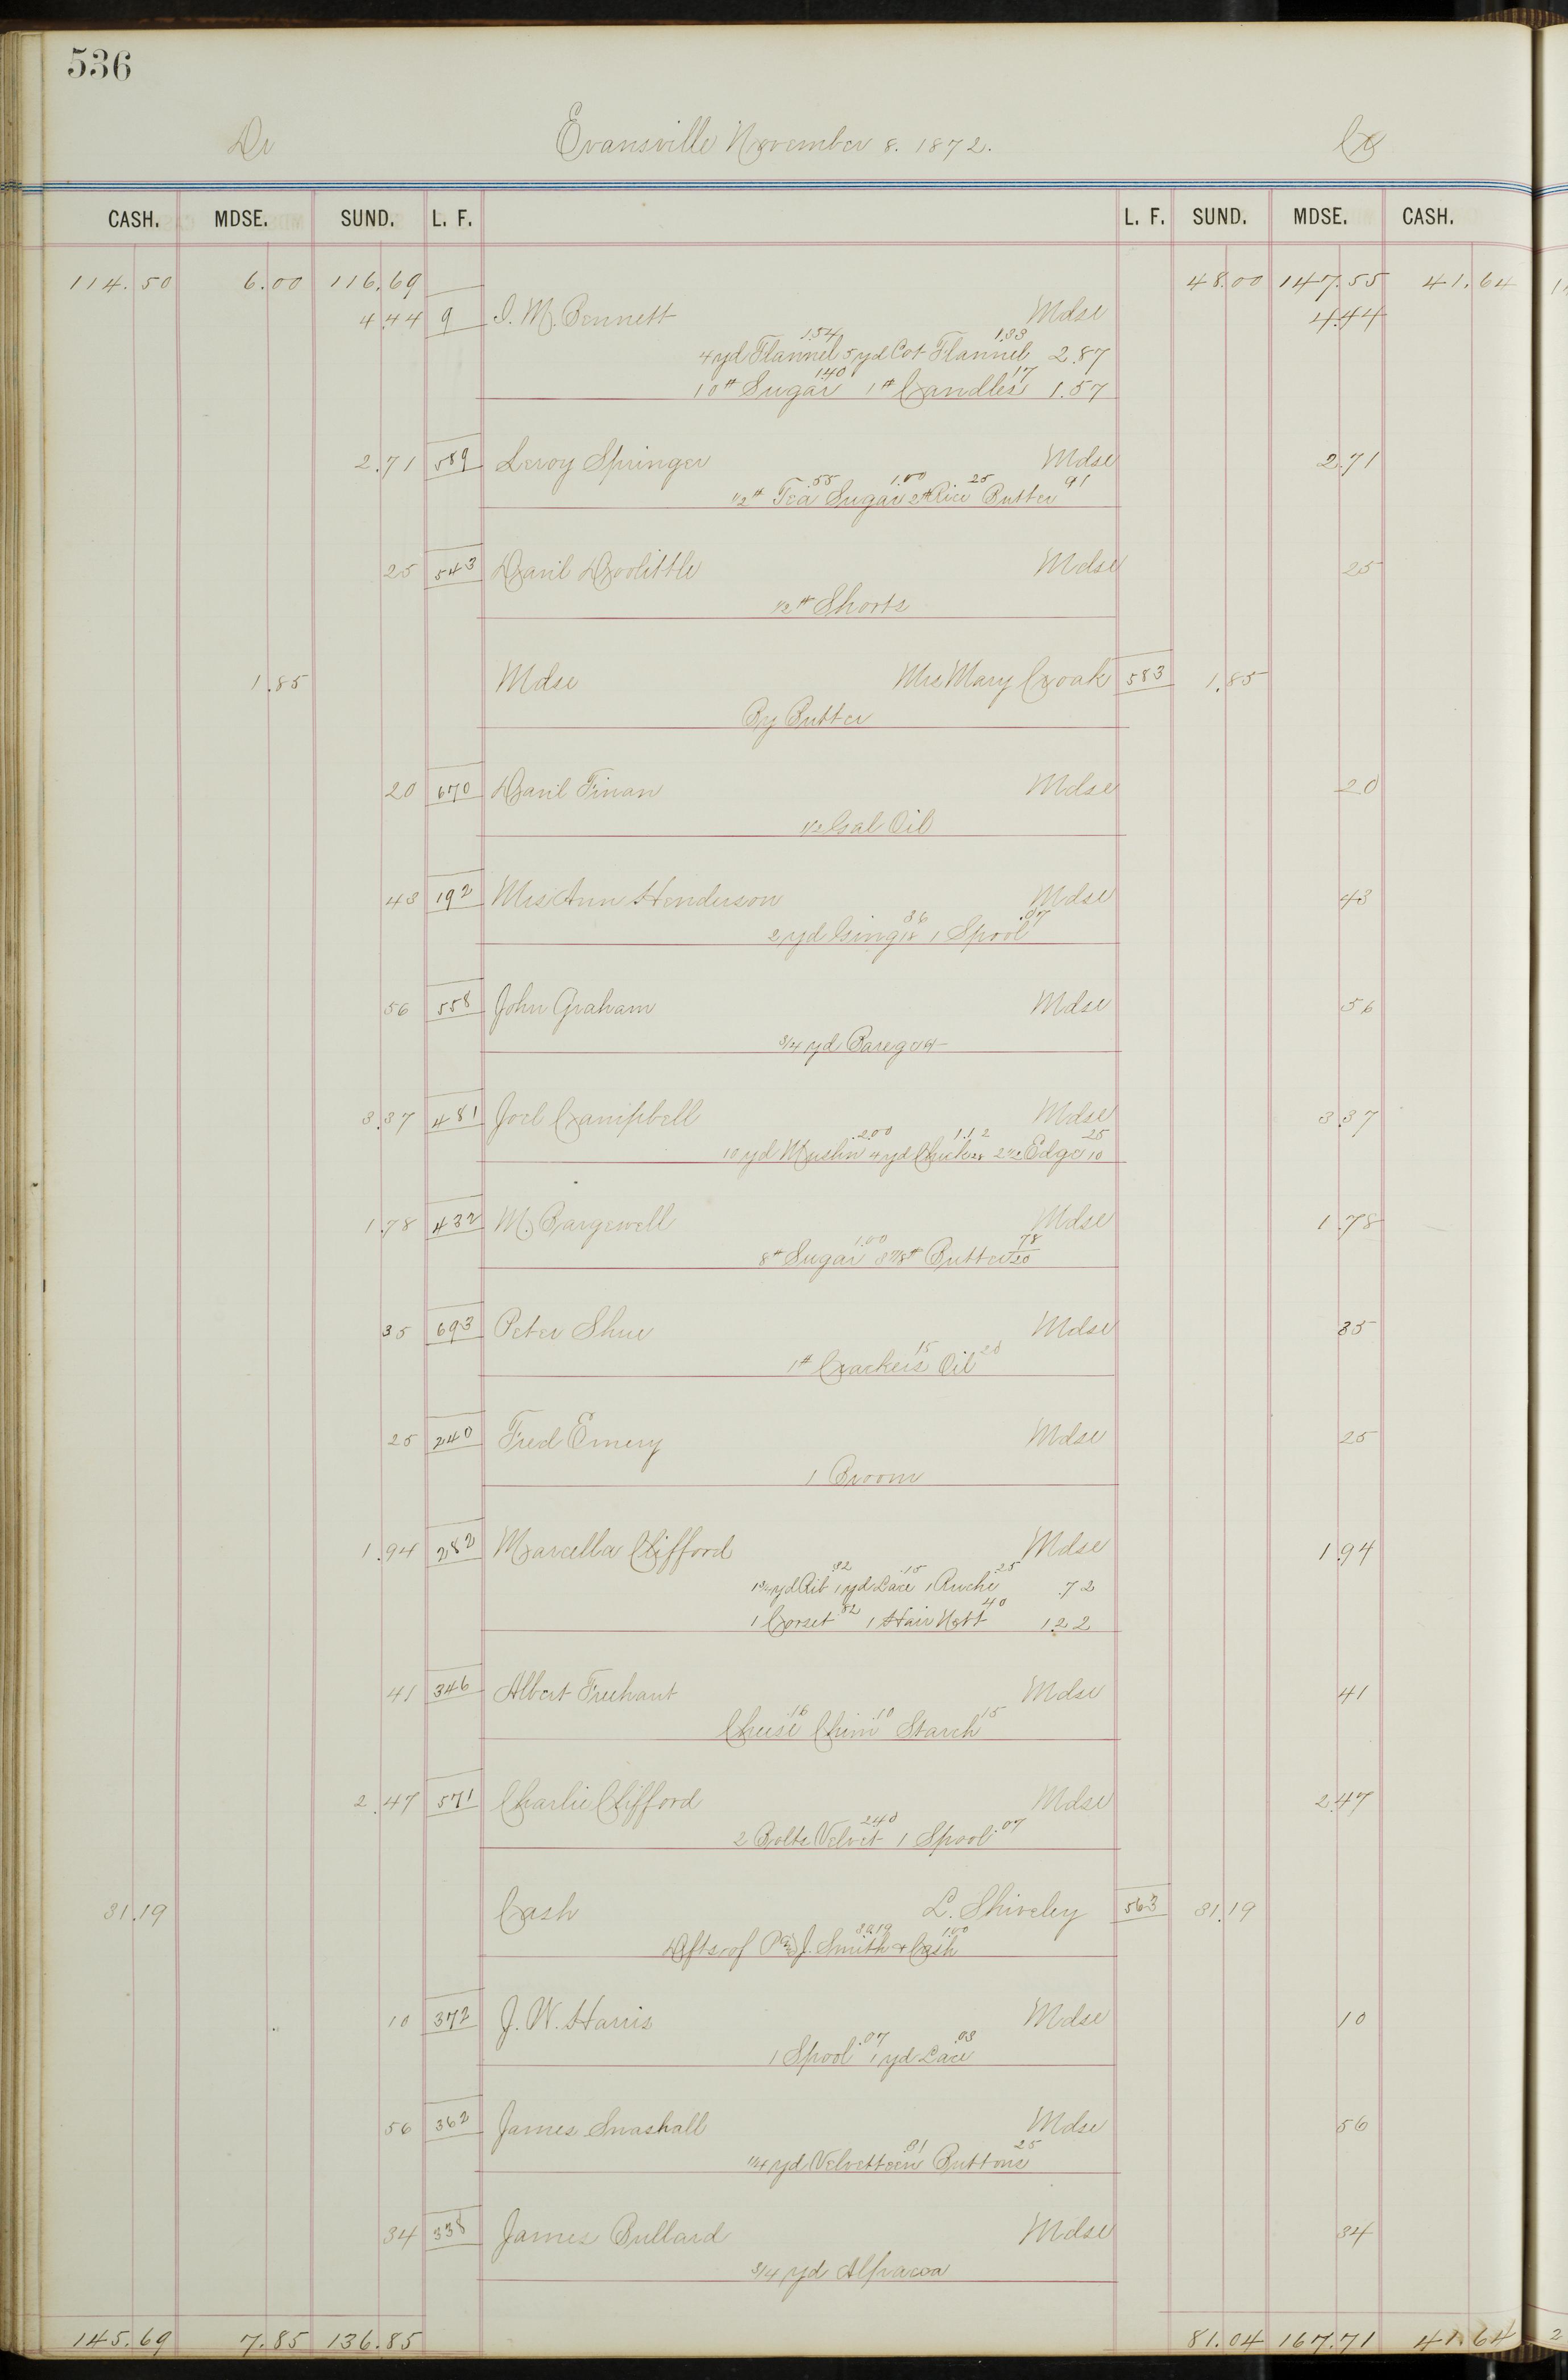 536
Dr Evansville November 8. 1872. Cr
CASH. MDSE. SUND. L. F. L. F. SUND. MDSE. CASH.
114.50 6.00 116.69 48.00 147.55 41.64
4.44 9 I. M. Bennett Mdse 4.44
4 yd Flannel 1.54 5 yd Cot Flannel 1.33 2.87
10# Sugar 1.40 1# Candles 17 1.57
2.71 589 Leroy Springer Mdse 2.71
1/2# Tea .55 Sugar 1.00 2# Rice 25 Butter 91
25 543 Danil Doolittle Mdse 25
1/2# Shorts
1.85 Mdse Mrs Mary Croak 583 1.85
By Butter
20 670 Danil Finan Mdse 20
1/2 Gal Oil
43 192 Mrs Ann Henderson Mdse 43
2 yd Ging 18 36 1 Spool .07
56 558 John Graham Mdse 56
3/4 yd Barege
3.37 481 Joel Campbell Mdse 3.37
10 yd Muslin 2.00 4 yd Check 28 1.12 2 1/2 Edge 10 25
1.78 432 M. Bargewell Mdse 1.78
8# Sugar 1.00 3 7/8# Butter 20 78
35 693 Peter Shue Mdse 35
1# Crackers 15 Oil 20
25 240 Fred Emery Mdse 25
1 Broom
1.94 282 Marcella Clifford Mdse 1.94
yd Rib 32 1 yd Lace .15 1 Ruche .25 .72
1 Corset .82 1 Hair Nett 40 1.22
41 346 Albert Freehaut Mdse 41
Cheese .16 Chim .10 Starch 15
2.47 571 Charlie Clifford Mdse 2.47
2 Bolts Velvet 2.40 1 Spool .07
31.19 Cash L. Shiveley 563 31.19
Dfts of J. Smith 30.19 & Cash 1.00
10 372 J. W. Harris Mdse 10
1 Spool .07 1 yd Lace .03
56 362 James Snashall Mdse 56
1/4 yd Velvetteen .31 Buttons 25
34 338 James Bullard Mdse 34
3/4 yd Alpacca
145.69 7.85 136.85 81.04 167.71 41.64